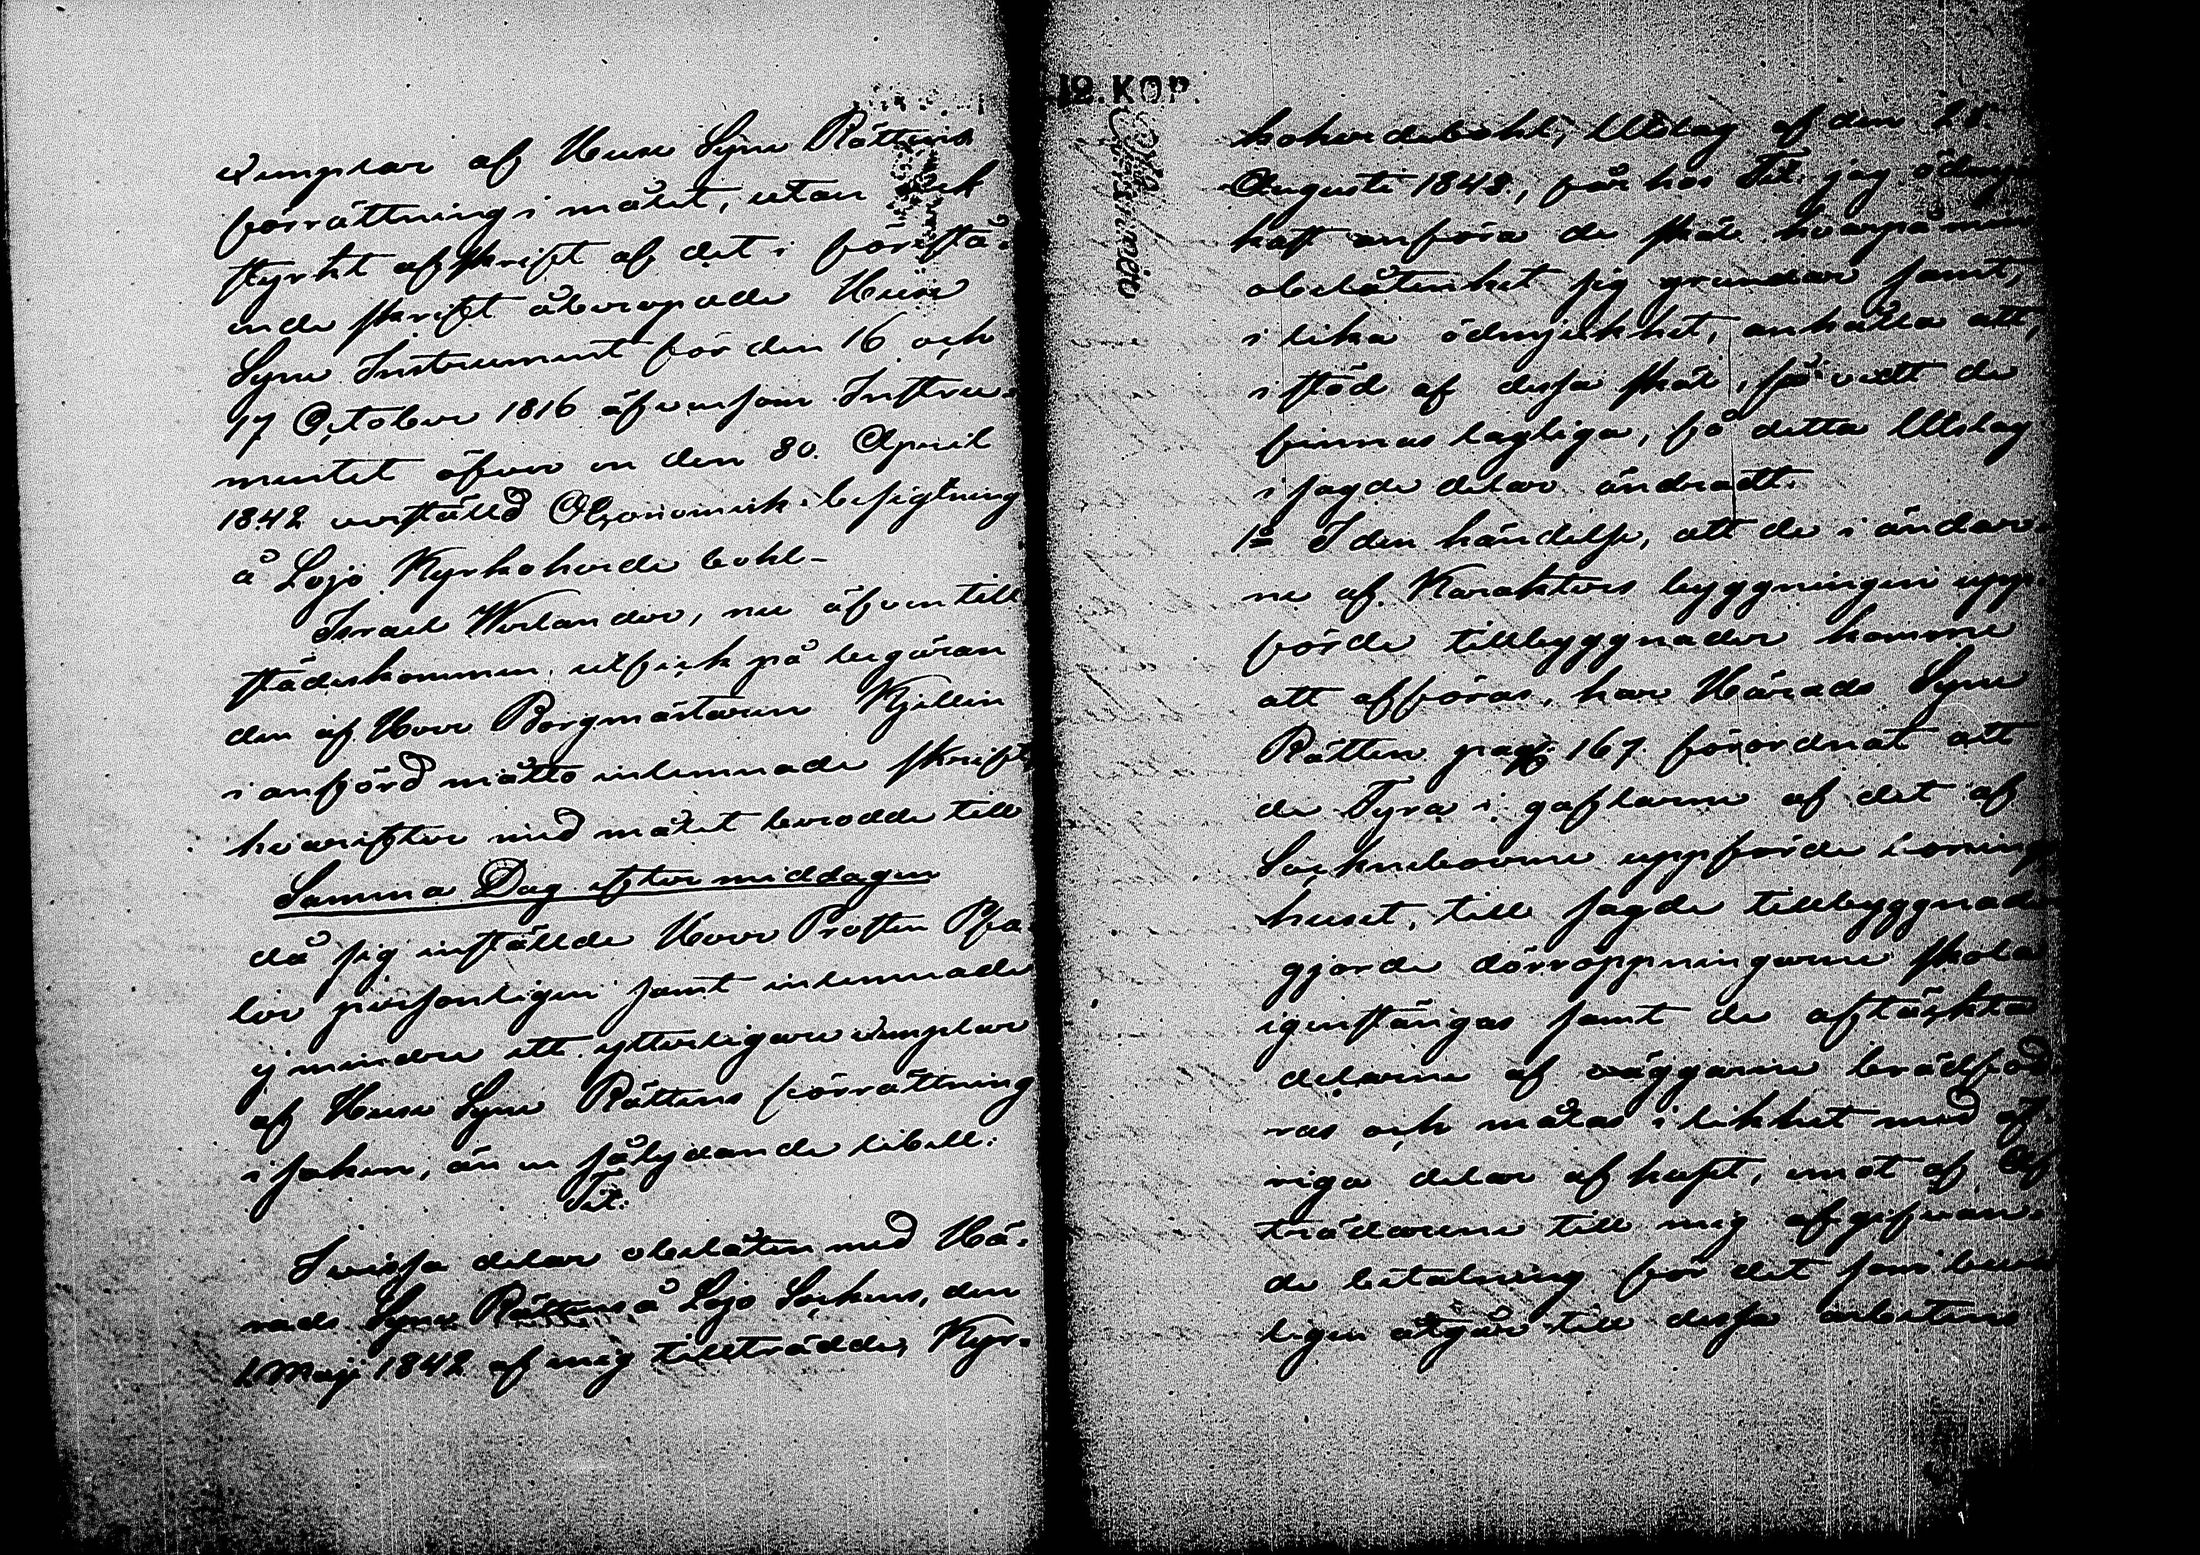 exemplar af Huse Syne Rättens
förrättning i målet, utan ock
styrkt afskrift af det i förestå-
ende skrift åberopade Huse
Syne Instrument för den 16 och
17 October 1816 äfvensom Instru-
mentet öfver en den 30. April
1842 verställd Oeconomisk besigtning
å Lojo Kyrkoherde bohl-
Israel Welander, nu äfven till
städeskommen, utfick på begäran
den af Herr Borgmästaren Kjellin
i anförd måtto inlemnade skrift,
hvarefter med målet berodde till
Samma Dag efter middagen
då sig inställde Herr Prosten Pfa-
ler personligen samt inlemnade
ej mindre ett ytterligare exemplar
af Huse Syne Rättens förrättning
i saken, än en sålydande libell:
Tit:
I vissa delar obelåten med Hä-
rads Syne Rättens å Lojo Sockens, den
1 Maji 1842 af mig tillträdde, Kyr-
12. KOP.
koherdebohl, Utslag af den 28
Augusti 1848, får hos Tit. jag ödmju
kast anföra de skäl hvarpå min
obelåtenhet sig grundar samt,
i lika ödmjukhet, anhålla att,
i stöd af dessa skäl, så vidt de
finnas lagliga, få detta Utslag
i sagde delar ändradt.
1º I den händelse, att de i ändar-
ne af Karakters byggningen upp-
förde tillbyggnader komme
att afföras, har Härads Syne
Rätten pag: 167 förordnat att
de Fyra i gaflarne af det af
Sockneboerne uppförde boning
huset, till sagde tillbyggnade
gjorde dörröppningarne skola
igenstängas samt de aftäckta
delarne af väggarne brädfod-
ras och målas i likhet med öf-
riga delar af huset, emot af Af
trädarene till mig afgifvan-
de betalning för det som bevis
ligen åtgår till dessa arbetens